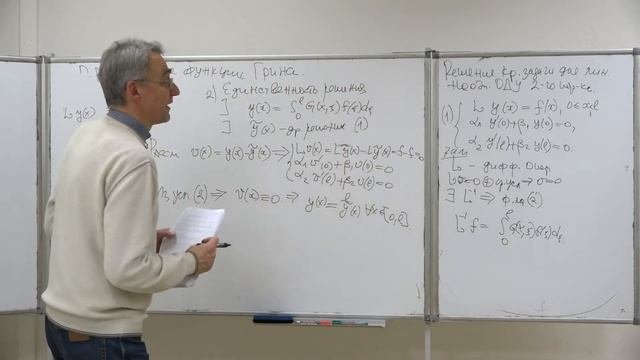 функции Грина.
2) Единственность решения
L y(x)
∃ y(x) = ∫₀ˡ G(x,ξ) f(ξ)dξ
∃ ỹ(x) - др. решение (1)
Расм v(x) = y(x) - ỹ(x) ⇒ { L v(x) = L y(x) - L ỹ(x) = f - f = 0
α₁ v'(0) + β₁ v(0) = 0
α₂ v'(l) + β₂ v(l) = 0
Из усл (2) ⇒ v(x) ≡ 0 ⇒ y(x) = ỹ(x) ∀x∈[0,l]
Решение кр. задачи для лин.
неодн. ОДУ 2-го пор.
(1) { L y(x) = f(x), 0<x<l
α₁ y'(0) + β₁ y(0) = 0,
α₂ y'(l) + β₂ y(l) = 0.
зам
L - дифф. опер.
∃ L⁻¹ ⇒ ф-ла (2)
L⁻¹ f = ∫₀ˡ G(x,ξ) f(ξ)dξ